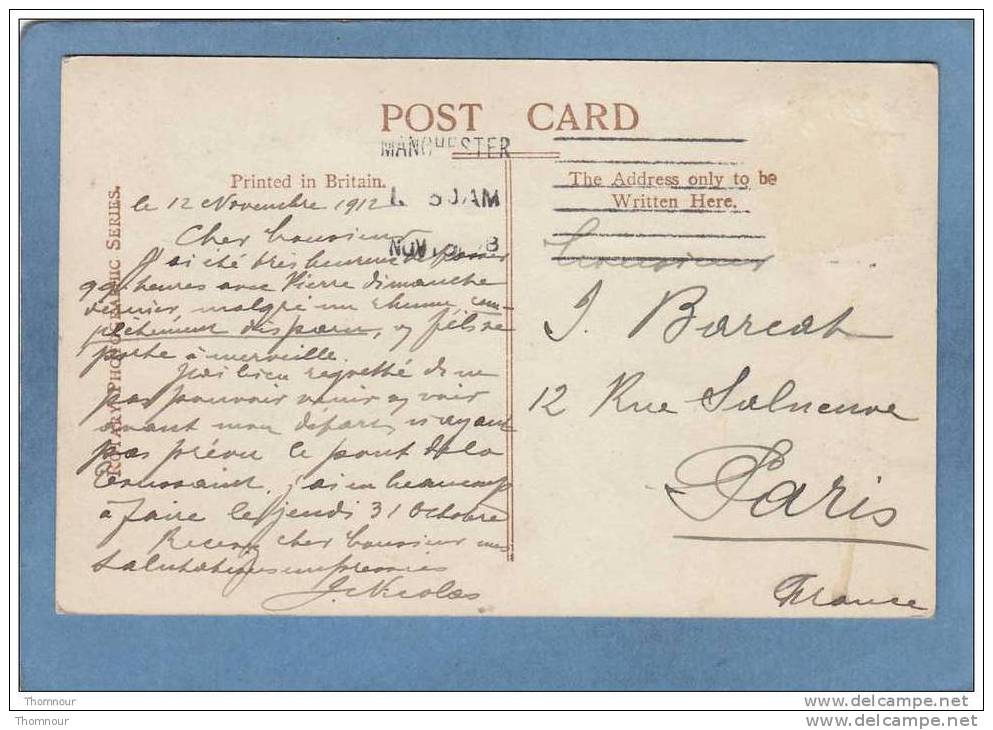 POST CARD
MANCHESTER
Printed in Britain.
The Address only to be
Written Here.
30 AM
NOV
ROTARY PHOTOGRAPHIC SERIES.
le 12 Novembre 1912
Cher Monsieur
J'ai été très heureux de passer
heures avec Pierre dimanche
dernier, malgré un rhume com-
plètement disparu, il se
porte à merveille.
J'ai bien regretté de ne
pas pouvoir venir y voir
avant mon départ, n'ayant
pas prévu le pont de la
Toussaint, j'ai eu beaucoup
à faire le jeudi 31 Octobre
Recevez cher Monsieur mes
salutations empressées
J. Nicolas
Monsieur
J. Barcat
12 Rue Salneuve
Paris
France
Thomnour
Thomnour
www.delcampe.net
www.delcampe.net